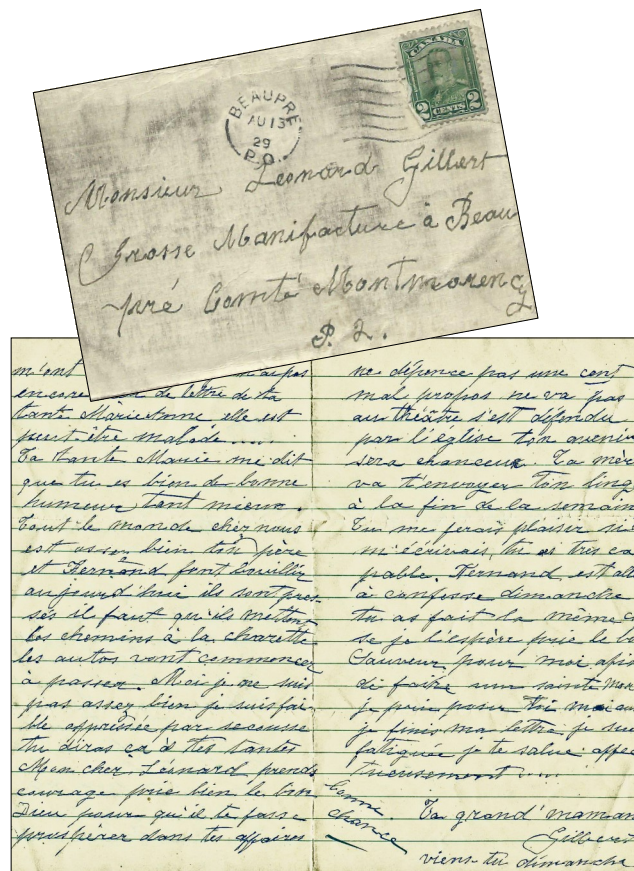 CANADA
2 CENTS 2
BEAUPRE
AU 13
29
P.Q.
Monsieur Leonard Gilbert
Grosse Manifacture à Beau
-pré Comté Montmorency
P. Q.
m'ont
encore de lettre de ta
tante Marie Anne elle est
peut être malade.....
Ta tante Marie me dit
que tu es bien de bonne
humeur tant mieux.
Tout le monde chez nous
est assez bien ton père
et Fernand font bouillir
aujourd huie ils sont pres-
sés il faut qu'ils mettent
les chemins à la charette
les autos vont commencer
à passer. Moi je ne suis
pas assez bien je suis fai-
ble oppressée par secousse
tu diras ça à tes tantes
Mon cher Léonard prends
courage prie bien le bon
Dieu pour qu'il te fasse
prospérer dans tes affaires
bonne
chance
ne dépence pas une cent
mal propos ne va pas
au théâtre s'est défendu
par l'eglise ton aveni
sera chanceux. Ta mèr
va t'envoyer ton ling
à la fin de la semain
Tu me ferais plaisir si
m'écrivais, tu es tres ca
pable. Fernand est all
à confesse dimanche
tu as fait la même c
se je l'espère prie le b
Sauveur pour moi afi
de faire une sainte mor
je prie pour toi moi au
je finis ma lettre je sui
fatiguée je te salue affec
tueusement.....
Ta grand'maman
Gilber
viens tu dimanche